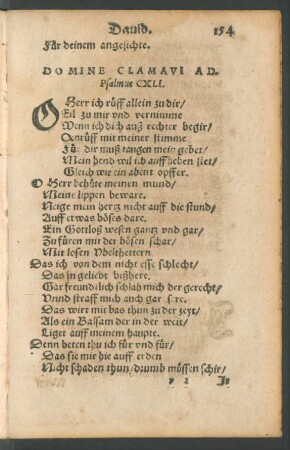 Dauid. 154
Für deinem angesichte.
DOMINE CLAMAVI AD.
Psalmus CXLI.
O Herr ich rüff allein zu dir/
Eil zu mir vnd vernimme
Wenn ich dich auß rechter begir/
Anrüff mit meiner stimme
Für dir muß tangen mein gebet/
Mein hend wil ich auff heben stet/
Gleich wie ein abent opffer.
O Herr behüte meinen mund/
Meine lippen beware.
Neige mein hertz nicht auff die stund/
Auff etwas böses dare.
Ein Gottloß wesen gantz vnd gar/
Zu füren mit der bösen schar/
Mit losen Vbelthettern
Das ich von dem nicht esse schlecht/
Das jn geliebt bißhere.
Gar freundelich schlah mich der gerecht/
Vnnd straff mich auch gar
Das wirt mir bas thun zu der zeyt/
Als ein Balsam der in der weit/
Liget auff meinem haupte.
Denn beten thu ich für vnd für/
Das sie mir hie auff erden
Nicht schaden thun/drumb müssen schir/
v 2 Ir